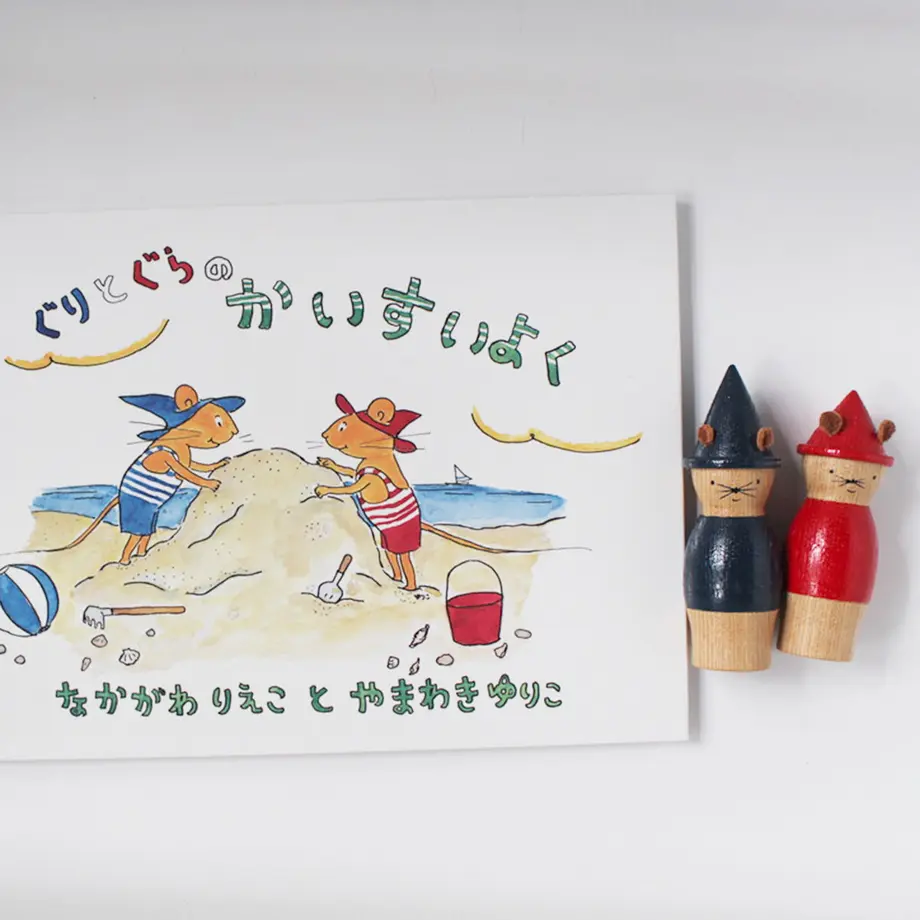 ぐりとぐらの
かいすいよく
なかがわ りえこ と やまわきゆりこ